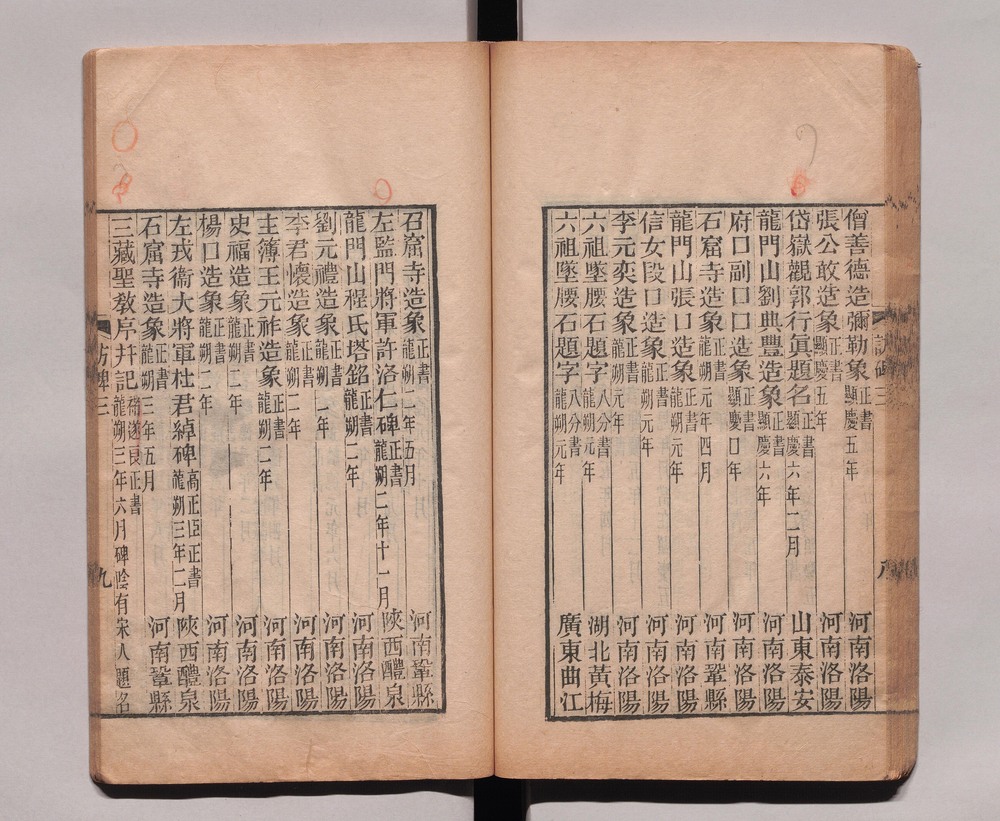 僧善德造彌勒象正書顯慶五年 河南洛陽
張公敢造象正書顯慶五年 河南洛陽
岱嶽觀郭行眞題名正書顯慶六年二月 山東泰安
龍門山劉典豐造象正書顯慶六年 河南洛陽
府口副口口造象正書顯慶口年 河南洛陽
石窟寺造象正書龍朔元年四月 河南鞏縣
龍門山張口造象正書龍朔元年 河南洛陽
信女段口造象正書龍朔元年 河南洛陽
李元奕造象正書龍朔元年 河南洛陽
六祖墜腰石題字八分書龍朔元年 湖北黃梅
六祖墜腰石題字八分書龍朔元年 廣東曲江
八
石窟寺造象正書龍朔二年五月 河南鞏縣
左監門將軍許洛仁碑正書龍朔二年十一月 陝西醴泉
龍門山程氏塔銘正書龍朔二年 河南洛陽
劉元禮造象正書龍朔二年 河南洛陽
李君懷造象正書龍朔二年 河南洛陽
主簿王元祚造象正書龍朔二年 河南洛陽
史福造象正書龍朔二年 河南洛陽
楊口造象正書龍朔二年 河南洛陽
左戎衞大將軍杜君綽碑高正臣正書龍朔三年二月 陝西醴泉
石窟寺造象正書龍朔三年五月 河南鞏縣
三藏聖敎序幷記褚遂良正書龍朔三年六月碑陰有宋人題名
訪碑三
九